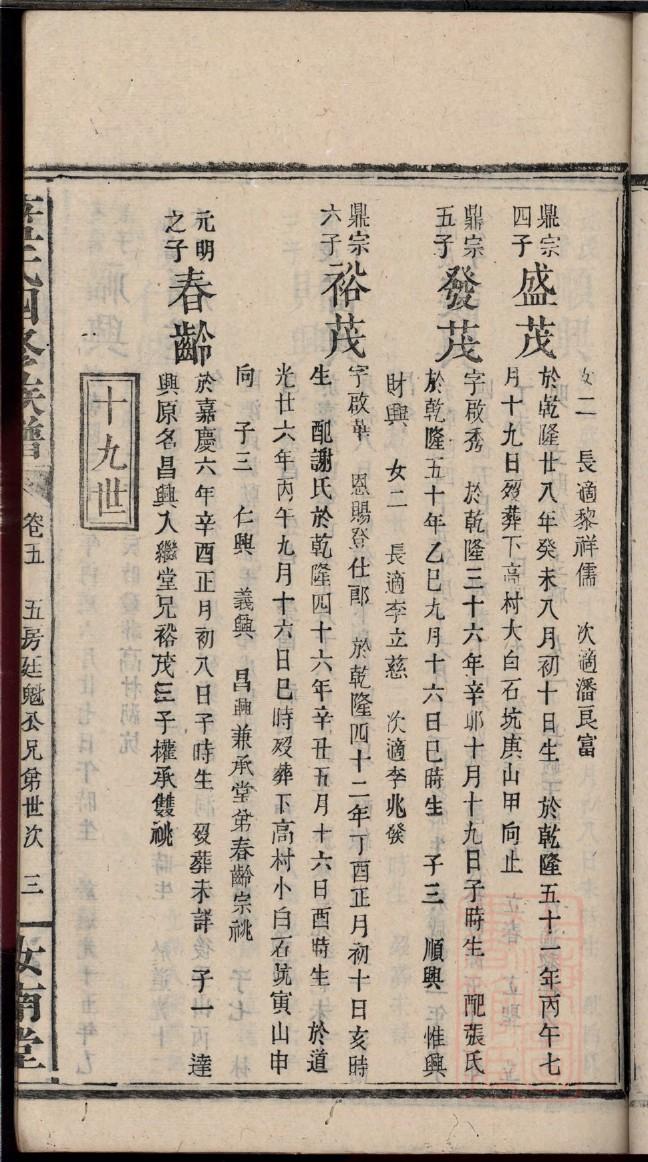 女二　長適黎祥儒　次適潘良富
鼎宗四子　盛茂　於乾隆廿八年癸未八月初十日生　於乾隆五十一年丙午七
月十九日歿葬下高村大白石坑庚山甲向止
鼎宗五子　發茂　字啟秀　於乾隆三十六年辛卯十月十九日子時生　配張氏
於乾隆五十年乙巳九月十六日巳時生　子三　順興　惟興
財興　女二　長適李立慈　次適李兆發
鼎宗六子　裕茂　字啟華　恩賜登仕郎　於乾隆四十二年丁酉正月初十日亥時
生　配謝氏於乾隆四十六年辛丑五月十六日酉時生　於道
光廿六年丙午九月十六日巳時歿葬下高村小白石坑寅山申
向　子三　仁興　義興　昌興兼承堂弟春齡宗祧
元明之子　春齡　於嘉慶六年辛酉正月初八日子時生　歿葬未詳　子一　達
興原名昌興入繼堂兄裕茂三子權承雙祧
十九世
氏四修族譜　卷五　五房廷魁公兄弟世次　三　汝南堂